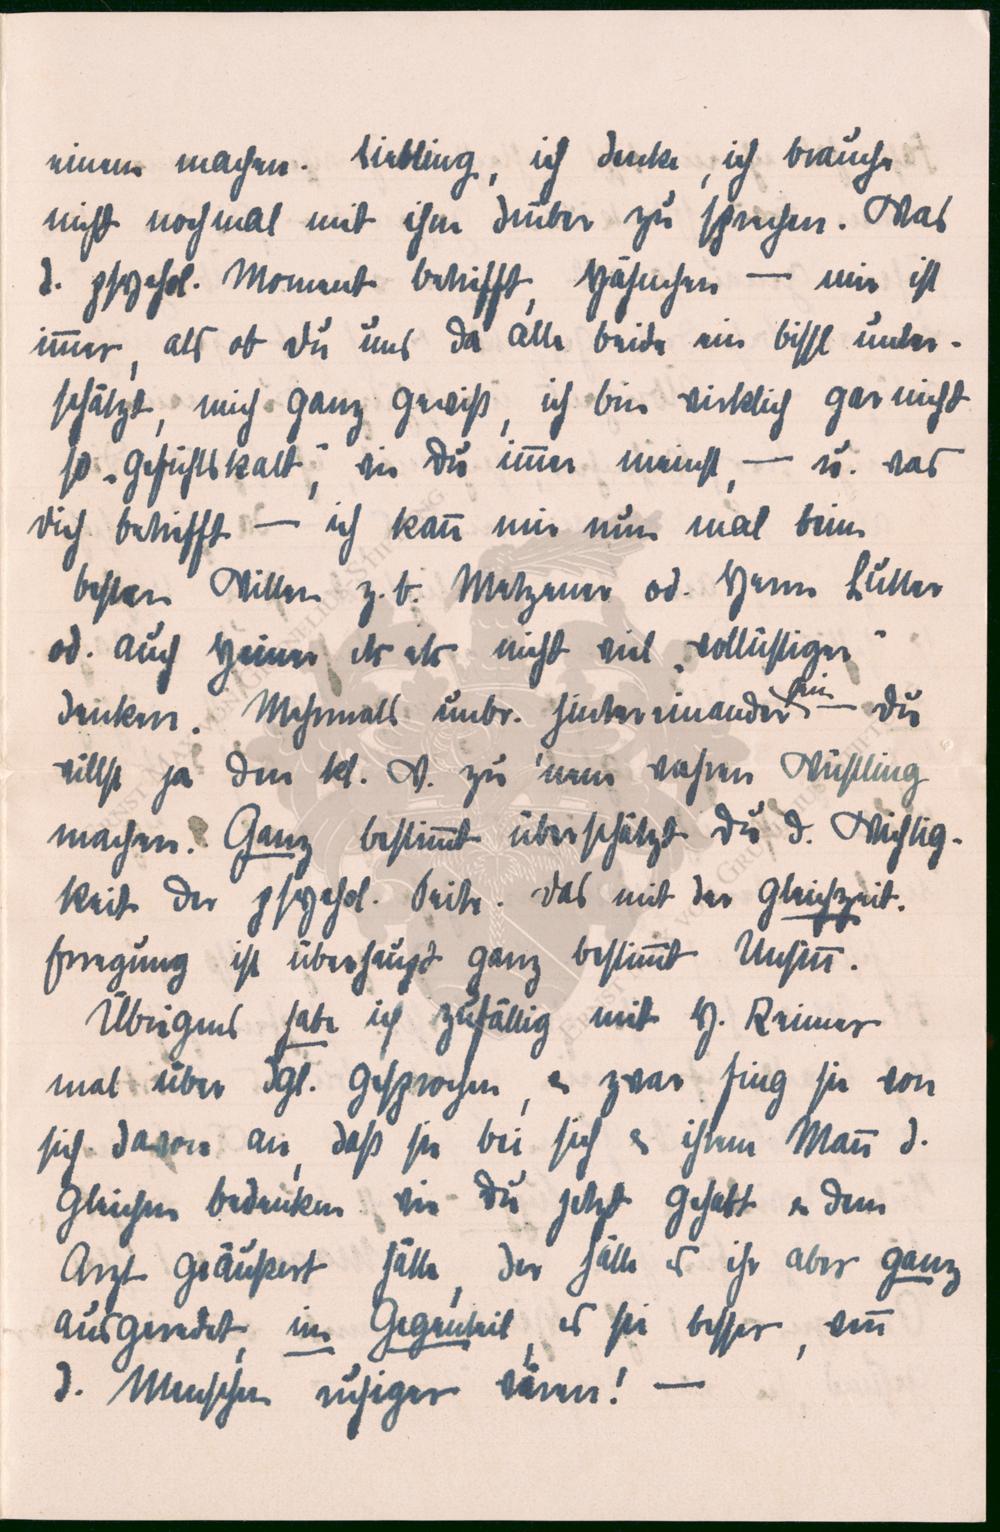 einem machen. Liebling, ich denke, ich brauche
nicht nochmal mit ihm drüber zu sprechen. Was
d. psychol. Moment betrifft, Hähnchen — mir ist
im̅er, als ob du uns da alle beide ein bissl unter-
schätzt, mich ganz gewiß, ich bin wirklich gar nicht
so „gefühlskalt", wie Du im̅er meinst, — u. was
dich betrifft — ich kan̅ mir nun mal beim
besten Willen z. b. Metzener od. Herrn Luther
od. auch Heiner als nicht viel „wollüstiger"
denken. Mehrmals unbr. hintereinander sein — Du
willst ja den kl. W. zu 'nem wahren Wüstling
machen. Ganz bestim̅t überschätzt Du d. Wichtig-
keit der psychol. Seite. Das mit der gleichzeit.
Erregung ist überhaupt ganz bestim̅t Unsin̅.
Übrigens habe ich zufällig mit H. Reimer
mal über dgl. gesprochen, u zwar fing sie von
sich davon an, daß sie bei sich u ihrem Man̅ d.
gleichen bedenken wie Du jetzt gehabt u dem
Arzt geäußert hätte, der hätte es ihr aber ganz
ausgeredet, im Gegenteil, es sei besser, wen̅
d. Menschen ruhiger wären! —
ERNST MAX VON GRUNELIUS-STIFTUNG